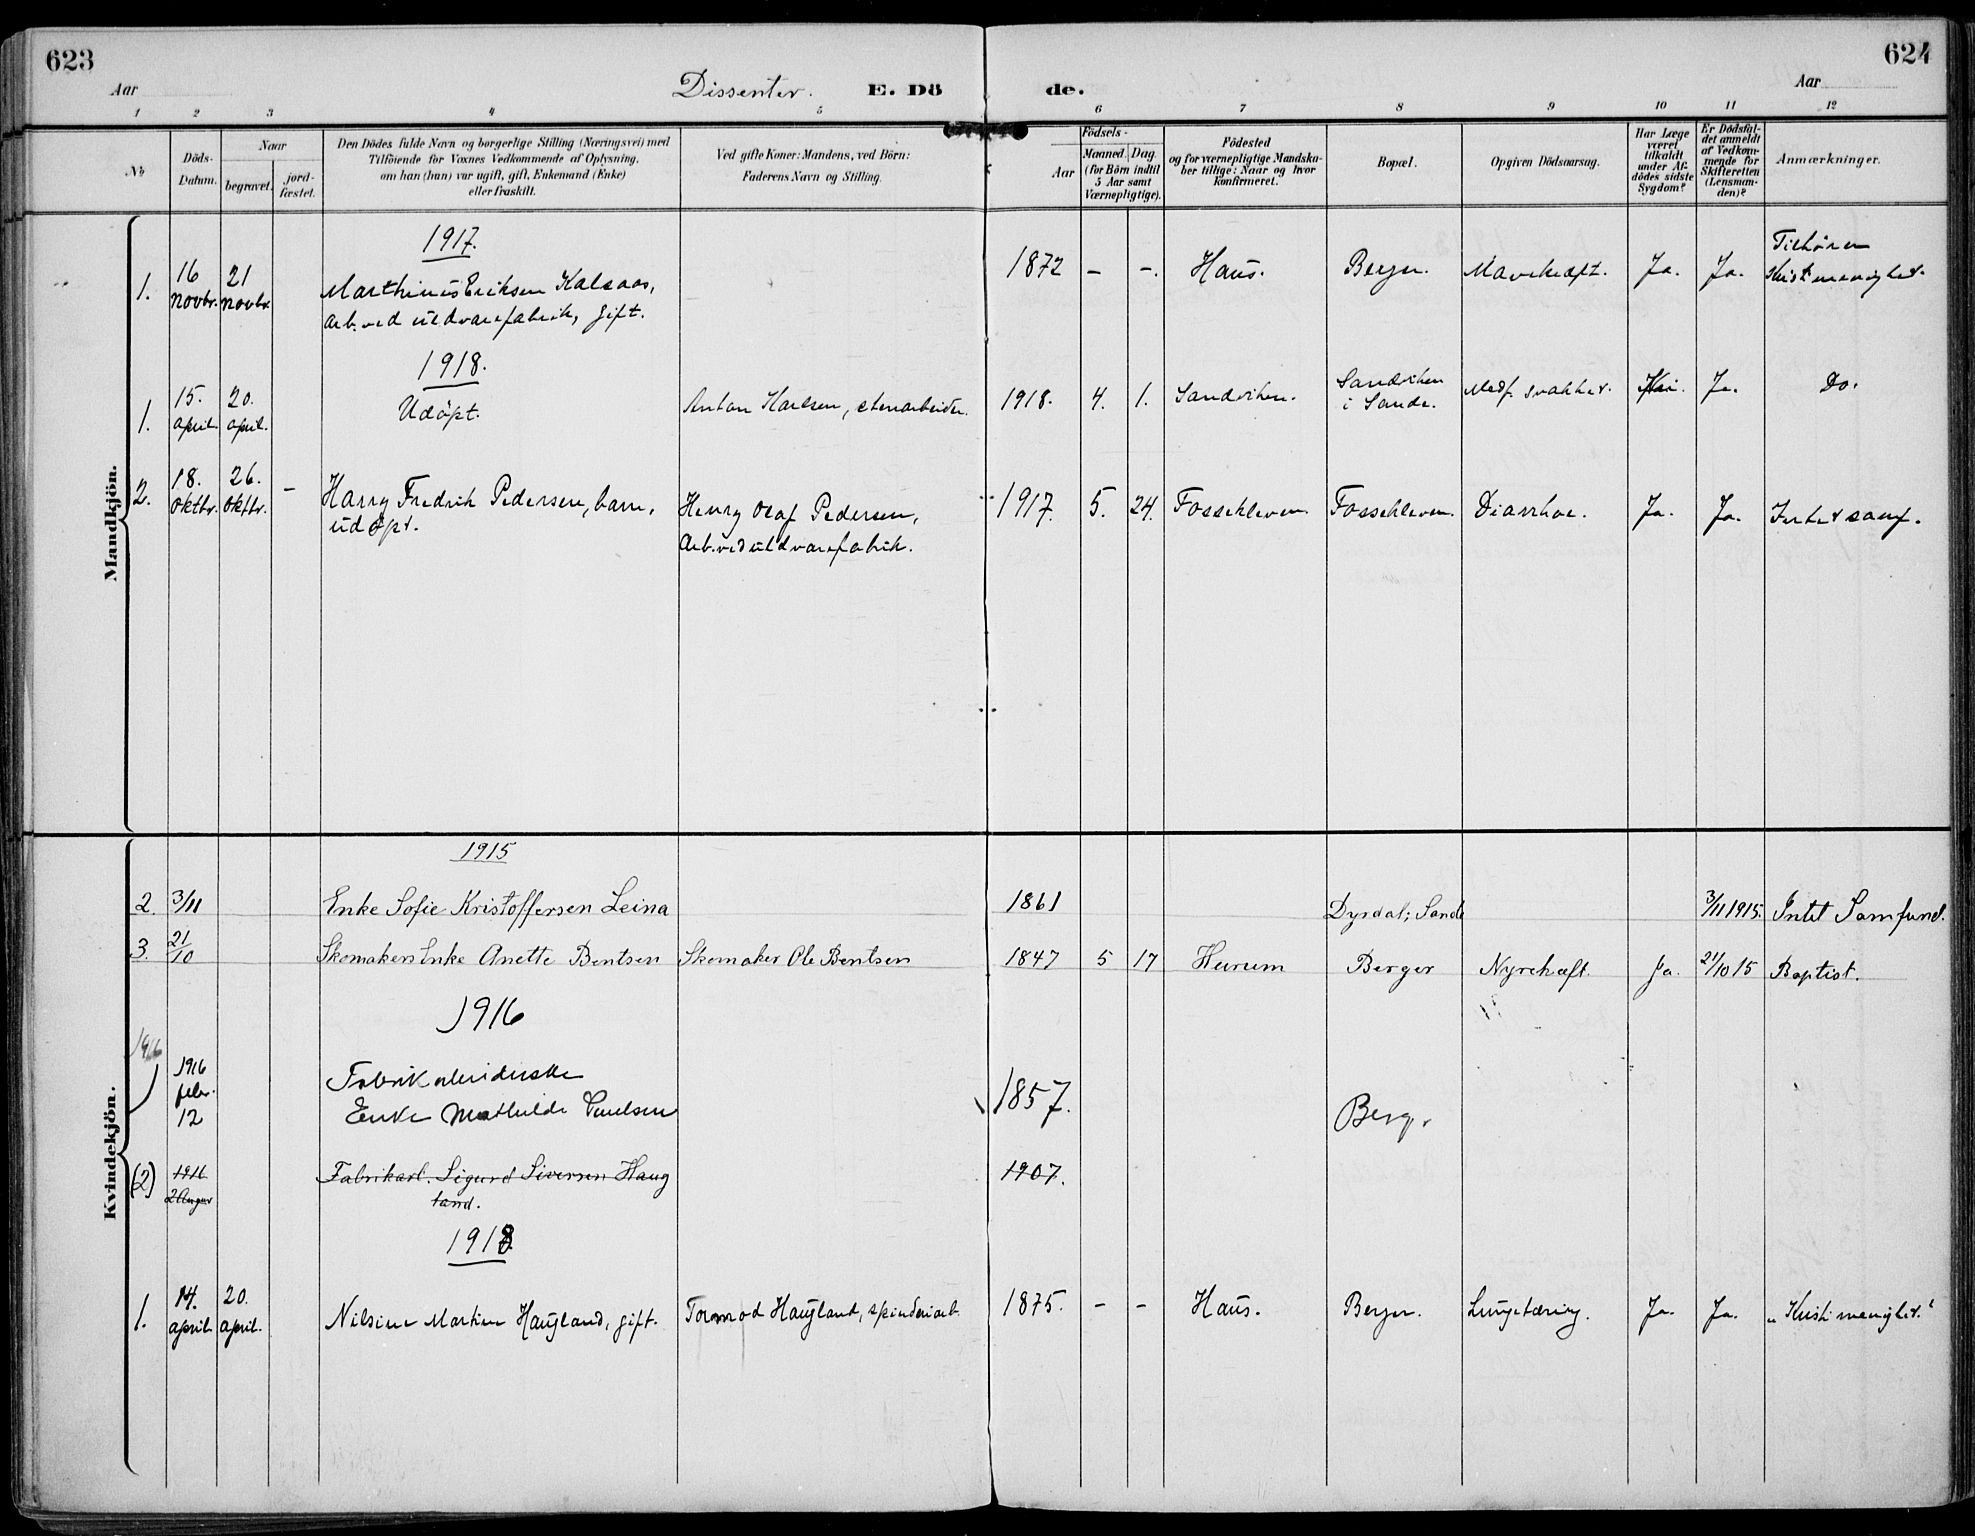 623
624
Aar
Dissenter. E. Dö de.
Aar
1 2 3 4 5 6 7 8 9 10 11 12
No
Döds-Datum.
Naar
begravet.
jord-fæstet.
Den Dödes fulde Navn og borgerlige Stilling (Næringsvei) med
Tilföiende for Voxnes Vedkommende af Oplysning,
om han (hun) var ugift, gift, Enkemand (Enke)
eller fraskilt.
Ved gifte Koner: Mandens, ved Börn:
Faderens Navn og Stilling.
Födsels-
Aar
Maaned. Dag.
(for Börn indtil
5 Aar samt
Værnepligtige).
Födested
og for værnepligtige Mandska-
ber tillige: Naar og hvor
konfirmeret.
Bopæl.
Opgiven Dödsaarsag.
Har Læge
været
tilkaldt
under Af-
dödes sidste
Sygdom?
Er Dödsfal-
det anmeldt
af Vedkom-
mende for
Skifteretten
(Lensman-
den)?
Anmærkninger.
Mandkjön.
1917.
1. 16 novbr. 21 novbr. Marthinus Eriksen Kalsaas, 1872 – –. Haus. Berger. Mavekræft. Ja. Ja. Tilhører
arb. ved uldvarefabrik, gift. menighet.
1918.
1. 15. april. 20. april. Udöpt. Anton Karlsen, stenarbeider. 1918. 4. 1. Sandviken. Sandviken
i Sande. Medf. svakhet. Ja. Do.
2. 18. oktbr. 26. oktbr. – Harry Fredrik Pedersen, barn, Henry Olaf Pedersen, 1917. 5. 24. Fossekleven Fossekleven. Diarrhoe. Ja. Ja. Intet samf.
udöpt. Arb. ved uldvarefabrik.
Kvindekjön.
1915
2. 3/11 Enke Sofie Kristoffersen Leina 1861 Dyrdal; Sande 3/11 1915. Intet Samfund.
3. 21/10 Skomakers Enke Anette Bentsen Skomaker Ole Bentsen 1847 5 17 Hurum Berger Nyrekræft Ja. 21/10 15 Baptist.
1916
1916
1916 febr. 12 Fabrikarbeiderske
Enke Mathilde 1857. Berger
(2) 1916 2 August Fabrikarb. Sigurd Siversen Haug 1907.
land.
1918
1. 14. april. 20. april. Nilsine Martine Haugland, gift. Tormod Haugland, spinderiarb. 1875. – – Haus. Berger. Lungetæring. Ja. Ja. „Kristi menighet."